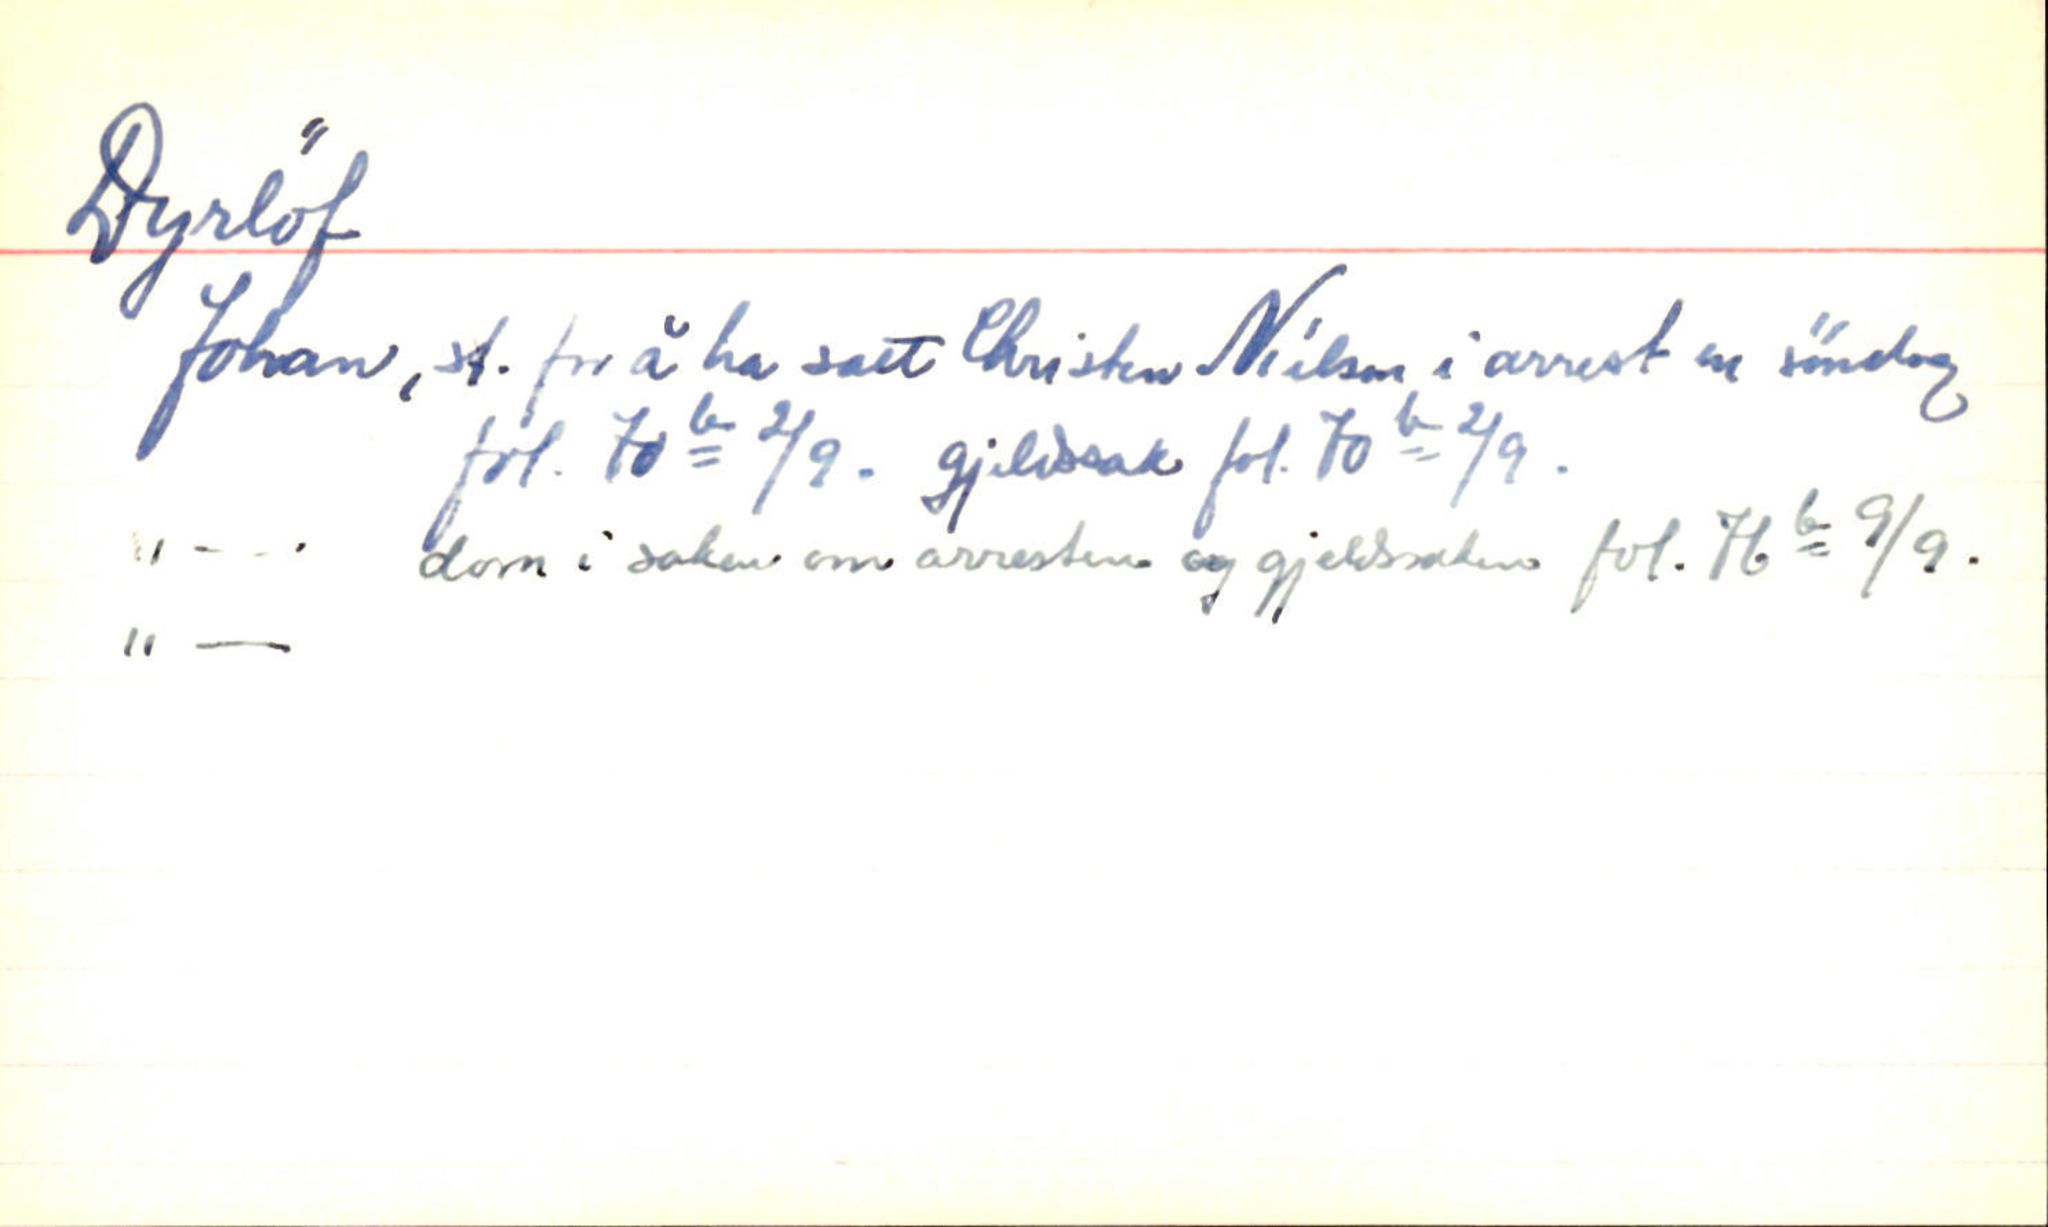 Dyrlöf
Johan, st. for å ha satt Christen Nielsen i arrest en söndag
fol. 70 b 2/9. gjeldssak fol. 70 b 2/9.
" - - . dom i saken om arresten og gjeldssaken fol. 76 b 9/9.
" —